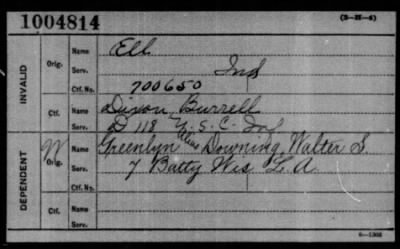 1004814
(3-H-6)
INVALID
Orig.
Name Ell
Serv. Ind
Ctf. No. 700650
Ctf.
Name Dixon, Burrell
Serv. D 118 U.S.C. Inf
DEPENDENT
W Orig.
Name Greenlyn alias Downing, Walter S.
Serv. 7 Batty Wis L.A.
Ctf. No.
Ctf.
Name
Serv.
6-1302